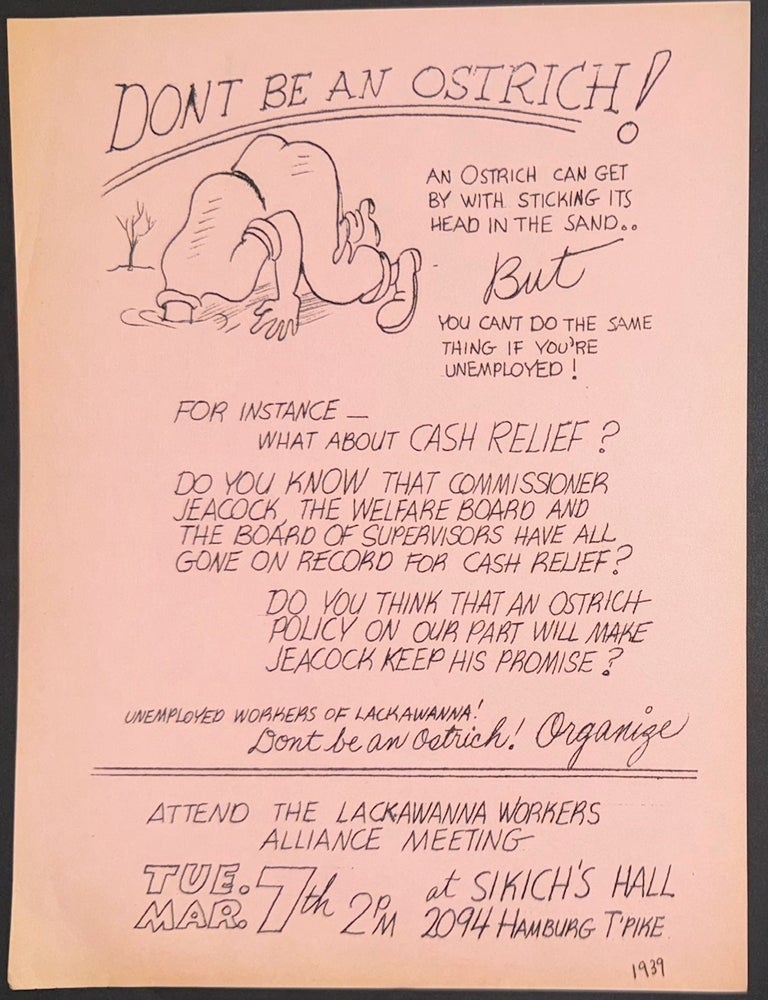 DONT BE AN OSTRICH!
AN OSTRICH CAN GET
BY WITH STICKING ITS
HEAD IN THE SAND..
But
YOU CANT DO THE SAME
THING IF YOU'RE
UNEMPLOYED!
FOR INSTANCE —
WHAT ABOUT CASH RELIEF?
DO YOU KNOW THAT COMMISSIONER
JEACOCK, THE WELFARE BOARD AND
THE BOARD OF SUPERVISORS HAVE ALL
GONE ON RECORD FOR CASH RELIEF?
DO YOU THINK THAT AN OSTRICH
POLICY ON OUR PART WILL MAKE
JEACOCK KEEP HIS PROMISE?
UNEMPLOYED WORKERS OF LACKAWANNA!
Dont be an Ostrich! Organize
ATTEND THE LACKAWANNA WORKERS
ALLIANCE MEETING
TUE. MAR. 7th 2PM
at SIKICH'S HALL
2094 HAMBURG T'PIKE
1939